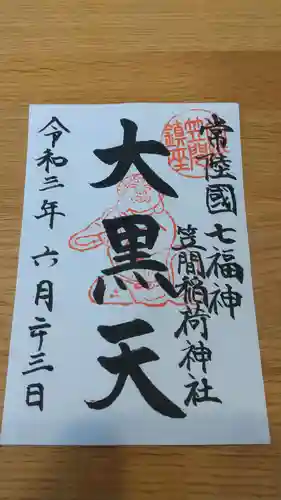 常陸國七福神
笠間稲荷神社
笠間
鎮座
大黒天
令和三年六月二十三日